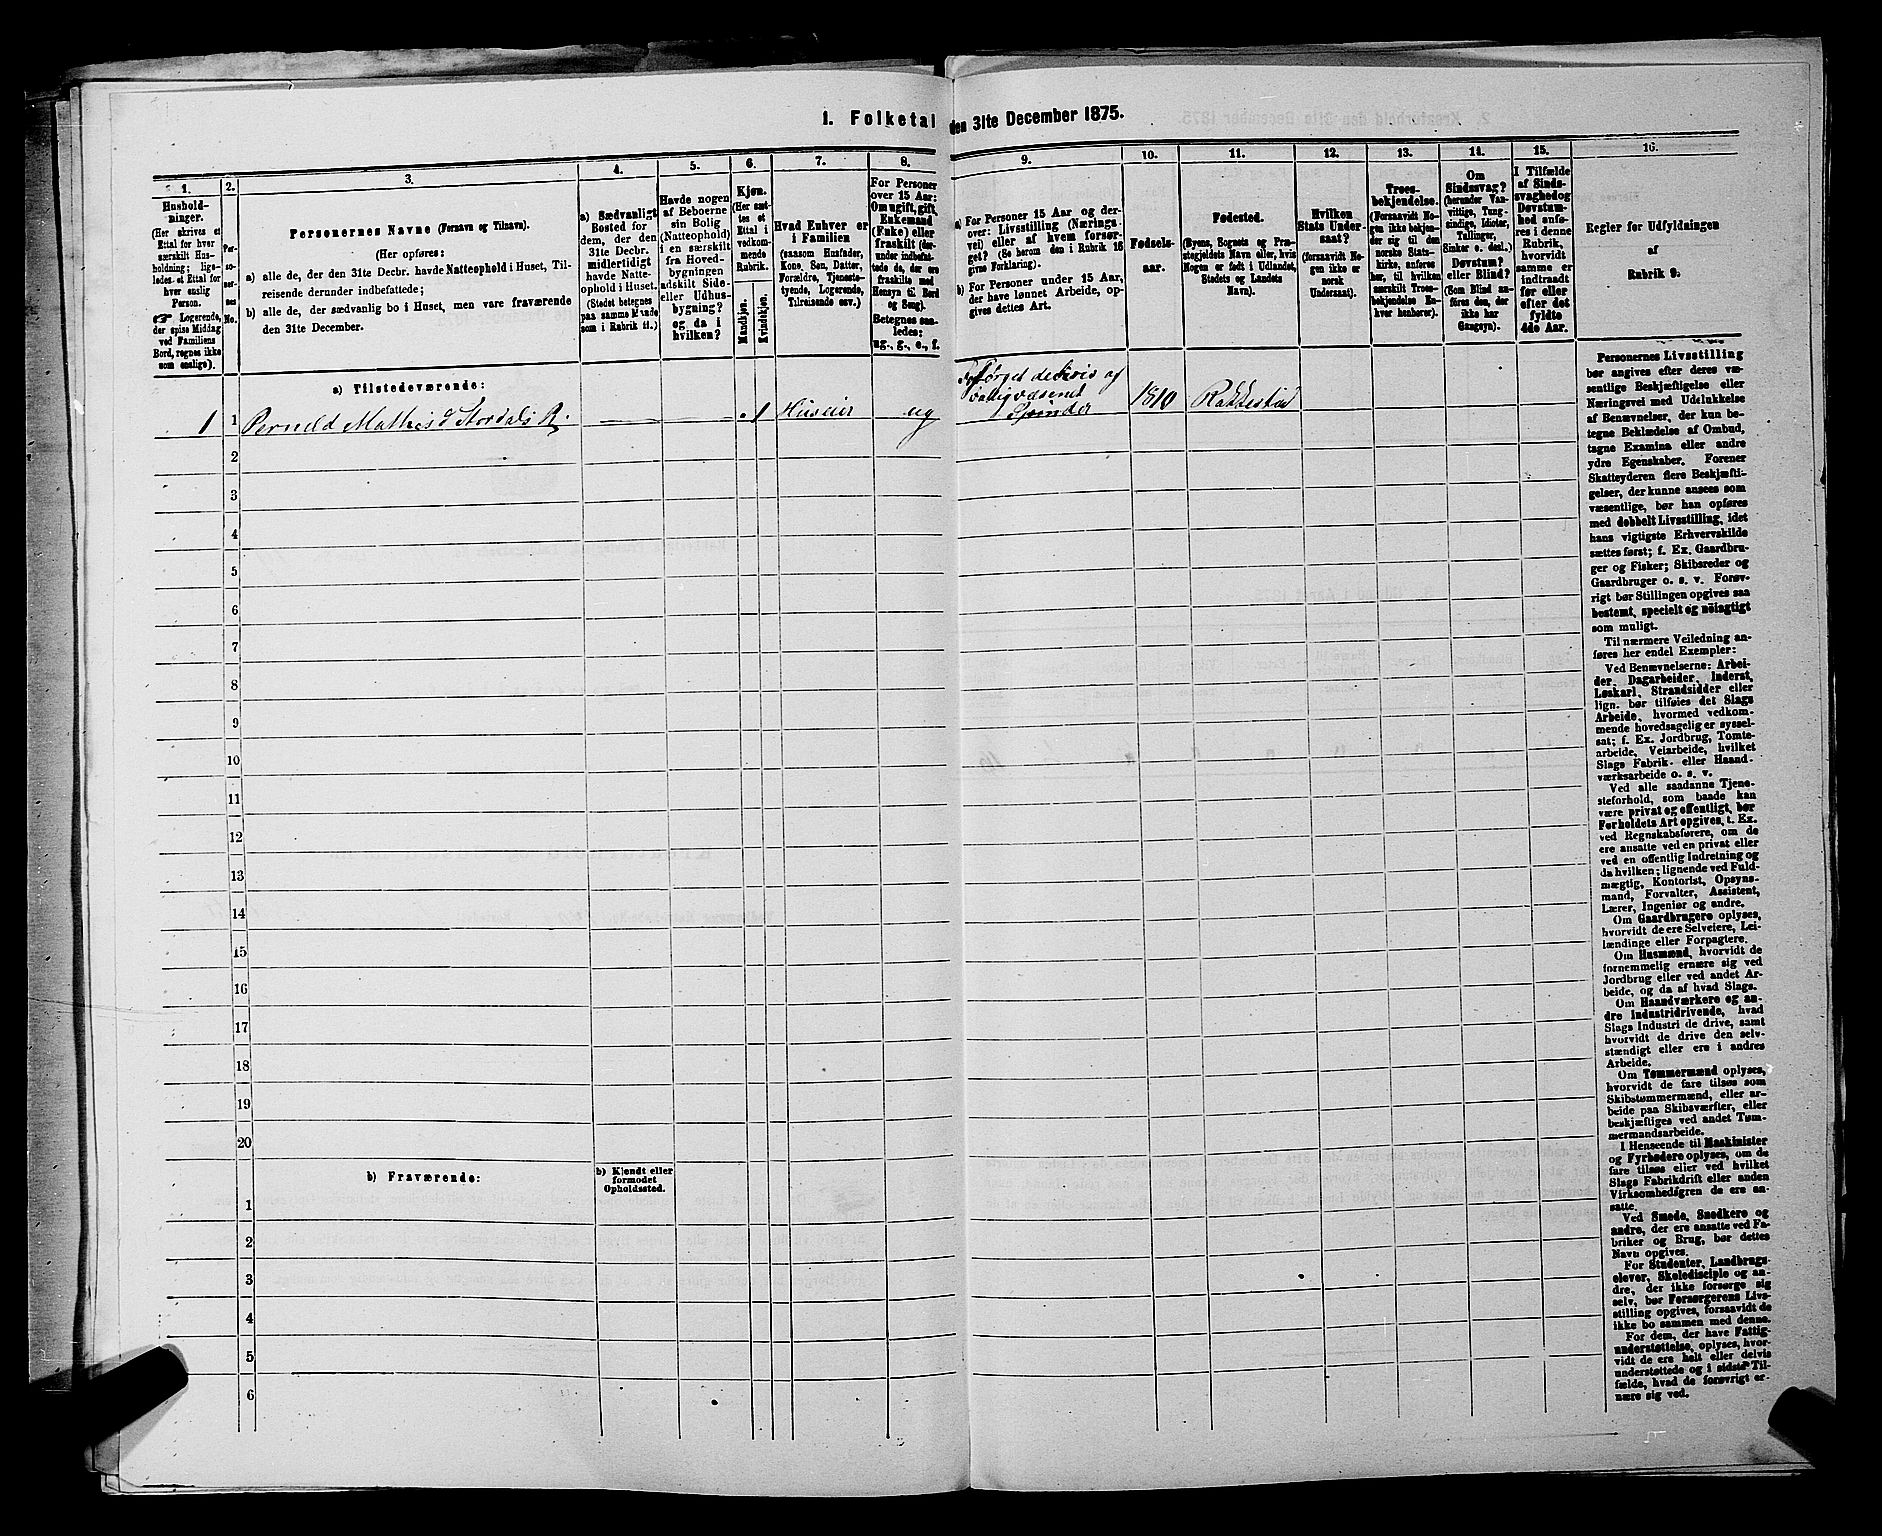 1. Folketal den 31te December 1875.
1. 2. 3. 4. 5. 6. 7. 8. 9. 10. 11. 12. 13. 14. 15. 16.
Hushold-
ninger.
(Her skrives et
Ettal for hver
særskilt Hus-
holdning; lige-
ledes et Ettal for
hver enslig
Person.
Logerende,
der spise Middag
ved Familiens
Bord, regnes ikke
som enslige).
Per-
so-
ner-
nes
No.
Personernes Navne (Fornavn og Tilnavn).
(Her opføres:
a) alle de, der den 31te Decbr. havde Natteophold i Huset, Til-
reisende derunder indbefattede;
b) alle de, der sædvanlig bo i Huset, men vare fraværende
den 31te December.
a) Sædvanligt
Bosted for
dem, der den
31te Decbr.
midlertidigt
havde Natte-
ophold i Huset.
(Stedet betegnes
paa samme Maade
som i Rubrik 11.)
Havde nogen
af Beboerne
sin Bolig
(Natteophold)
i en særskilt
fra Hoved-
bygningen
adskilt Side-
eller Udhus-
bygning?
og da i
hvilken?
Kjøn.
(Her sæt-
tes et
Ettal i
vedkom-
mende
Rubrik.
Mandkjøn.
Kvindekjøn.
Hvad Enhver er
i Familien
(saasom Husfader,
Kone, Søn, Datter,
Forældre, Tjeneste-
tyende, Logerende,
Tilreisende osv.)
For Personer
over 15 Aar:
Om ugift, gift,
Enkemand
(Enke) eller
fraskilt (der-
under indbefat-
tede de, der ere
fraskilte med
Hensyn til Bord
og Seng).
Betegnes saa-
ledes:
ug., g., e., f.
a) For Personer 15 Aar og der-
over: Livsstilling (Nærings-
vei) eller af hvem forsør-
get? (Se herom den i Rubrik 16
givne Forklaring).
b) For Personer under 15 Aar,
der have lønnet Arbeide, op-
gives dettes Art.
Fødsels-
aar.
Fødested.
(Byens, Sognets og Præ-
stegjeldets Navn eller, hvis
Nogen er født i Udlandet,
Stedets og Landets
Navn).
Hvilken
Stats Under-
saat?
(forsaavidt No-
gen ikke er
norsk
Undersaat).
Troes-
bekjendelse.
(Forsaavidt No-
gen ikke bekjen-
der sig til den
norske Stats-
kirke, anføres
her, til hvilken
særskilt Troes-
bekjendelse En-
hver henhører).
Om
Sindssvag?
(herunder Van-
vittige, Tung-
sindige, Idioter,
Tullinger,
Sinker o. desl.)
Døvstum?
eller Blind?
(Som Blind an-
føres den, der
ikke har
Gangsyn).
I Tilfælde
af Sinds-
svaghed og
Døvstum-
hed anfø-
res i denne
Rubrik,
hvorvidt
samme er
indtraadt
før eller
efter det
fyldte
4de Aar.
Regler for Udfyldningen
af
Rubrik 9.
a) Tilstedeværende:
Forsørget delvis af
Fattigvæsenet
1 1 Pernild Mathisd Stordals R. 1 Huseier ug Spinder 1810 Rakkestad
2
3
4
5
6
7
8
9
10
11
12
13
14
15
16
17
18
19
20
b) Fraværende:
b) Kjendt eller
formodet
Opholdssted.
1
2
3
4
5
6
Personernes Livsstilling
bør angives efter deres væ-
sentlige Beskjæftigelse eller
Næringsvei med Udelukkelse
af Benævnelser, der kun be-
tegne Beklædelse af Ombud,
tagne Examina eller andre
ydre Egenskaber. Forener
Skatteyderen flere Beskjæfti-
gelser, der kunne ansees som
væsentlige, bør han opføres
med dobbelt Livsstilling, idet
hans vigtigste Erhvervskilde
sættes først; f. Ex. Gaardbru-
ger og Fisker; Skibsreder og
Gaardbruger o. s. v. Forøv-
rigt bør Stillingen opgives saa
bestemt, specielt og nøiagtigt
som muligt.
Til nærmere Veiledning an-
føres her endel Exempler:
Ved Benævnelserne: Arbei-
der, Dagarbeider, Inderst,
Løskarl, Strandsidder eller
lign. bør tilføies det Slags
Arbeide, hvormed vedkom-
mende hovedsagelig er syssel-
sat; f. Ex. Jordbrug, Tomte-
arbeide, Veiarbeide, hvilket
Slags Fabrik- eller Haand-
værksarbeide o. s. v.
Ved alle saadanne Tjene-
steforhold, som baade kan
være privat og offentligt, bør
Forholdets Art opgives, t. Ex.
ved Regnskabsførere, om de
ere ansatte ved en privat eller
ved en offentlig Indretning og
da hvilken; lignende ved Fuld-
mægtig, Kontorist, Opsyns-
mand, Forvalter, Assistent,
Lærer, Ingeniør og andre.
Om Gaardbrugere oplyses,
hvorvidt de ere Selveiere, Lei-
lændinge eller Forpagtere.
Om Husmænd, hvorvidt de
fornemmelig ernære sig ved
Jordbrug eller ved andet Ar-
beide, og da af hvad Slags.
Om Haandværkere og an-
dre Industridrivende, hvad
Slags Industri de drive, samt
hvorvidt de drive den selv-
stændigt eller ere i andres
Arbeide.
Om Tømmermænd oplyses,
hvorvidt de fare tilsøs som
Skibstømmermænd, eller ar-
beide paa Skibsværfter, eller
beskjæftiges ved andet Tøm-
mermandsarbeide.
I Henseende til Maskinister
og Fyrbødere oplyses, om de
fare tilsøs eller ved hvilket
Slags Fabrikdrift eller anden
Virksomhedsgren de ere an-
satte.
Ved Smede, Snedkere og
andre, der ere ansatte ved Fa-
briker og Brug, bør dettes
Navn opgives.
For Studenter, Landbrugs-
elever, Skoledisciple og an-
dre, der ikke forsørge sig
selv, bør Forsørgerens Livs-
stilling opgives, forsaavidt de
ikke bo sammen med denne.
For dem, der have Fattig-
understøttelse, oplyses, hvor-
vidt de ere helt eller delvis
understøttede og i sidste Til-
fælde, hvad de forøvrigt er-
nære sig ved.